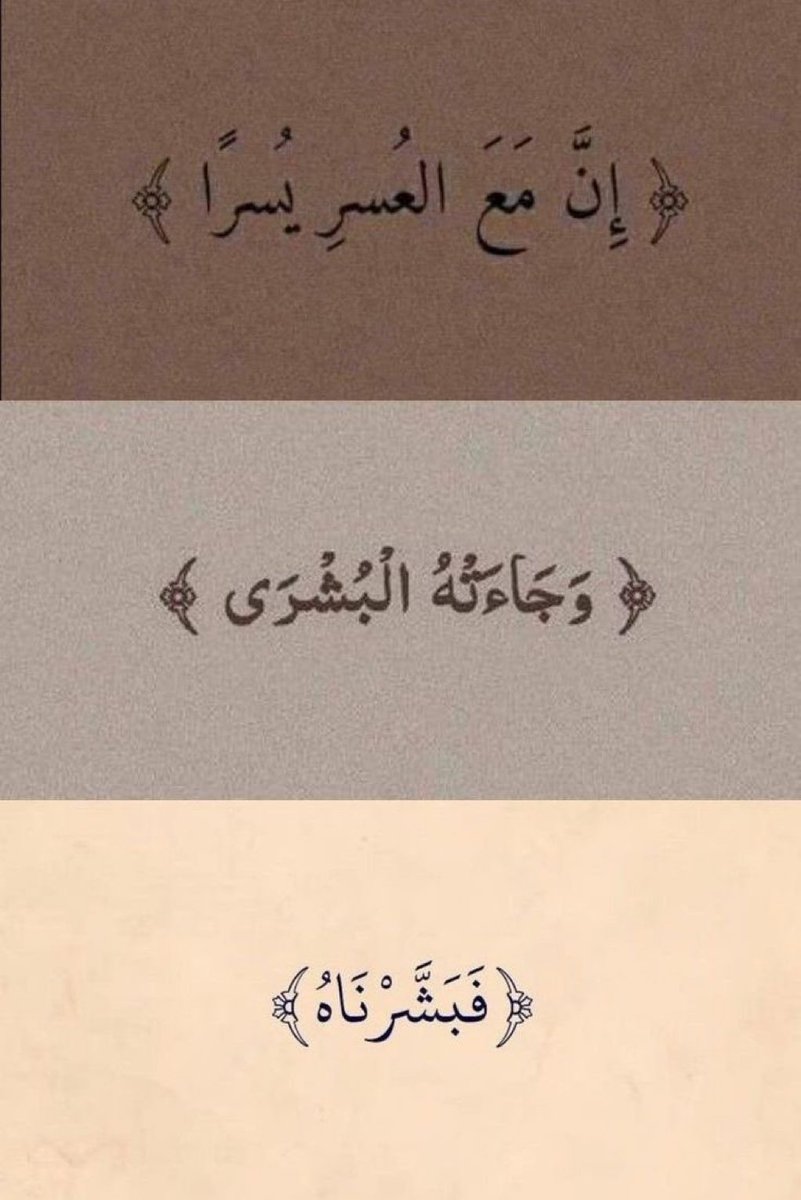 ﴿ إِنَّ مَعَ العُسرِ يُسرًا ﴾
﴿ وَجَاءَتْهُ الْبُشْرَى ﴾
﴿فَبَشَّرْنَاهُ﴾